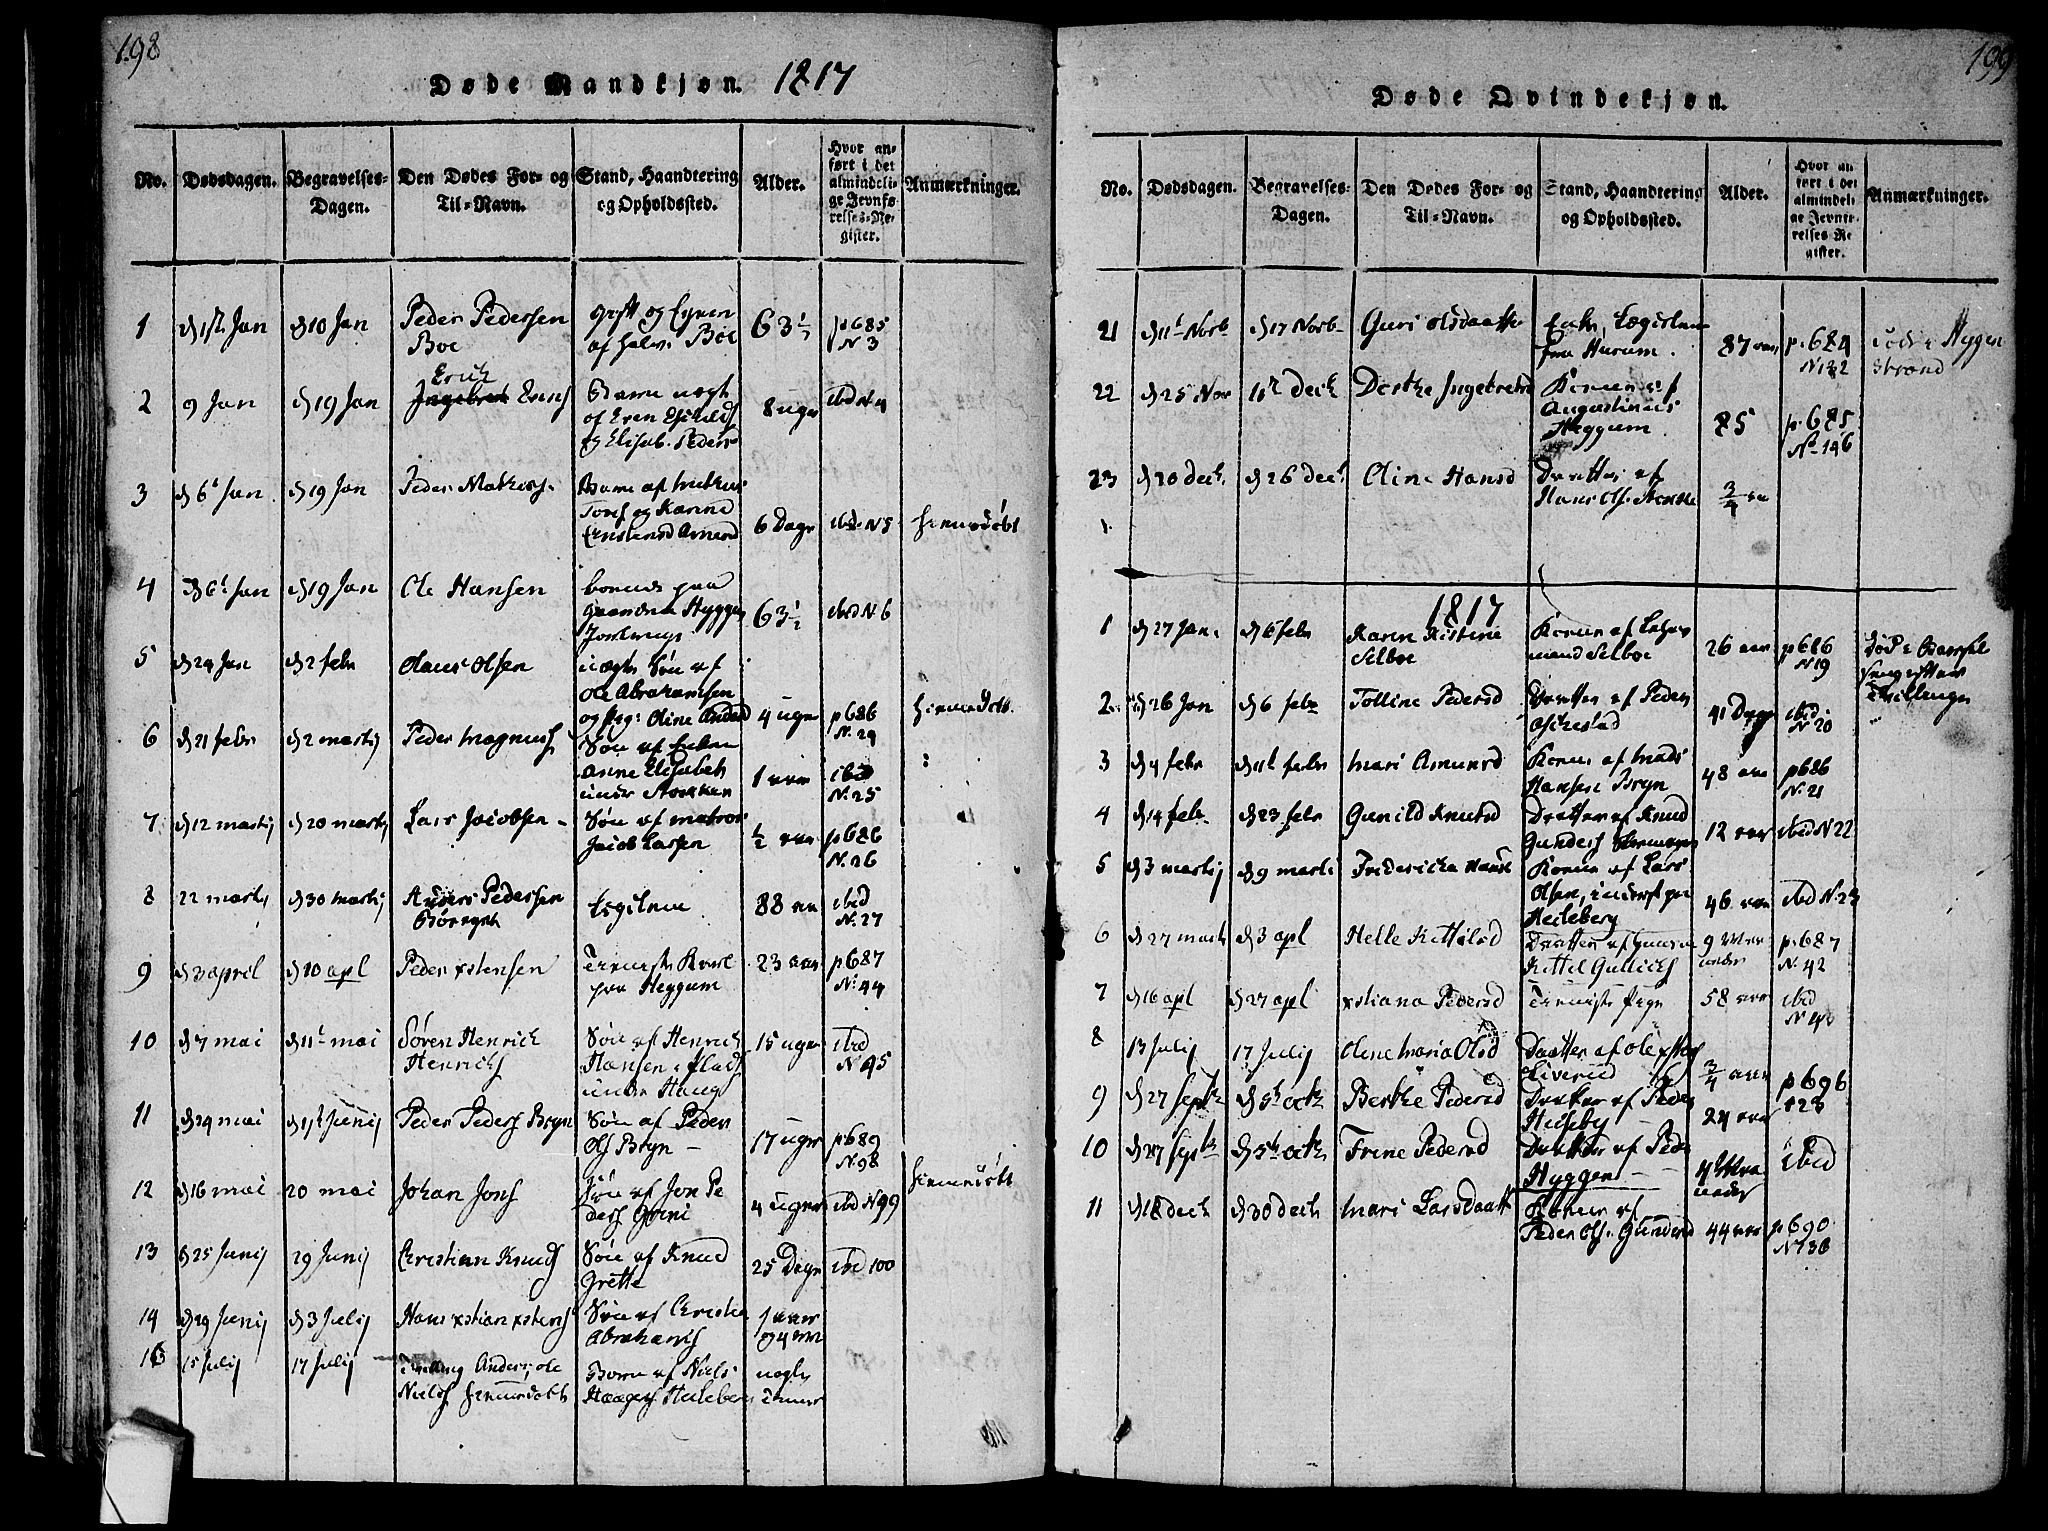 198
Døde Mandkjøn. 1817
No. Dødsdagen. Begravelses-Dagen. Den Dødes For- og Til-Navn. Stand, Haandtering og Opholdssted. Alder. Hvor anført i det almindelige Jevnførelses-Register. Anmærkninger.
1 d 1ste Jan d 10 Jan Peder Pedersen Boe gift og af halv Böe 63 1/2 p 685 N 3
2 9 Jan d 19 Jan Erich Erens Barn uægt of Even og Elisab. Peders 8 uger ibid N 4
3 d 6t Jan d 19 Jan Peder Mathis Barn af og Karine 6 Dage ibid N 5 hiemedöbt
4 d 6t Jan d 19 Jan Ole Hansen paa Hyggen 63 1/2 ibid N 6
5 d 24 Jan d 2 febr Olaus Olsen uægte Sön af Ole Abrahamsen og pig: Oline 4 uger p 686 N. 24 hiemedöbt
6 d 21 febr d 2 martij Peder Magnus Sön af Enken Anne Elisabeth under Stokken 1 aar ibid N. 25
7 d 12 martij d 20 martij Lars Jacobsen Sön af matros Jacob Larsen 1/2 aar p 686 N. 26
8 22 martij d 30 martij Anders Pedersen Legdslem 88 aar ibid N. 27
9 d 3 april d 10 apl Peder xstensen Tieneste Karl paa Heggum 23 aar p 687 N. 44
10 d 7 mai d 11t mai Sören Henrich Henrichs Sön af Henrich Hansen Plads under Haug 15 uger ibid N 45
11 d 24 mai d 1ste Junij Peder Peders Bryn Sön af Peder Ols Bryn 17 uger p 689 N. 98
12 d 16 mai 20 mai Johan Jons Sön af Jon Peders Grini 4 uger ibid N 99 hiemedöbt
13 d 25 Junij 29 Junij Christian Knuds Sön af Knud Grette 25 Dage ibid 100
14 d 29 Junij d 3 Julij Hans xstian xstens Sön af Christen Abrahams
15 Julij 17 Julij Tvilling Anders, Ole Niels hiemedöbte Börn af Niels Haagens Heileberg nogle Timer
199
Døde Qvindekjøn.
No. Dødsdagen. Begravelses-Dagen. Den Dødes For- og Til-Navn. Stand, Haandtering og Opholdssted. Alder. Hvor anført i det almindelige Jevnførelses Register. Anmærkninger.
21 d 11t Novb d 17 Novb Guri Olsdaatter Enke, Legdslem fra Hurum. 87 aar p. 684 död i Hyggen Strand
22 d 25 Nov 1ste Decb Dorthe Ingebretsd Konen af Augustinus Heggum. 25 p. 685 No 146
23 d 20 decb d 26 decb Oline Hansd Datter af Hans Ols. 3/4 aar
1817
1 d 27 Jan. d 6 febr Karen Kistine Selboe Konen af Selboe 26 aar p 686 N. 19 död i Barselseng efter Tvillinger
2 d 26 Jan d 6 febr Tolline Pedersd Datter af Peder 41 Dage ibid N. 20
3 d 4 febr d 11t febr Mari Amunsd Konen af Mads Hansen Bryn 48 aar p 686 N. 21
4 d 14 febr d 23 febr Gunild Knutsd Datter af Knud Gunders 12 aar ibid N 22
5 d 3 martij d 9 marti Fridericha Hansd Konen af Lars Olsen, inderst paa Heileberg 46 aar ibid N. 23
6 d 27 marti d 3 apl Helle Kittilsd Datter af Kittel Gullichs 9 aar p. 687 N. 42
7 d 16 apl d 27 apl xstiana Pedersd Tieneste Pige 58 aar ibid
8 13 Julij 17 Julij Oline Maria Olsd Datter af Ole xstens Liverud 3/4 aar
9 d 27 Septb d 5te octb Berthe Pedersd Datter af Peder 24 aar p 696 123
10 d 27 Septb d 5te octb Trine Pedersd Datter af Peder Hyggen ibid
11 d 18 decb d 30 decb Mari Larsdaatter Konen af Peder Ols. Gunders 44 aar p 690 N 136